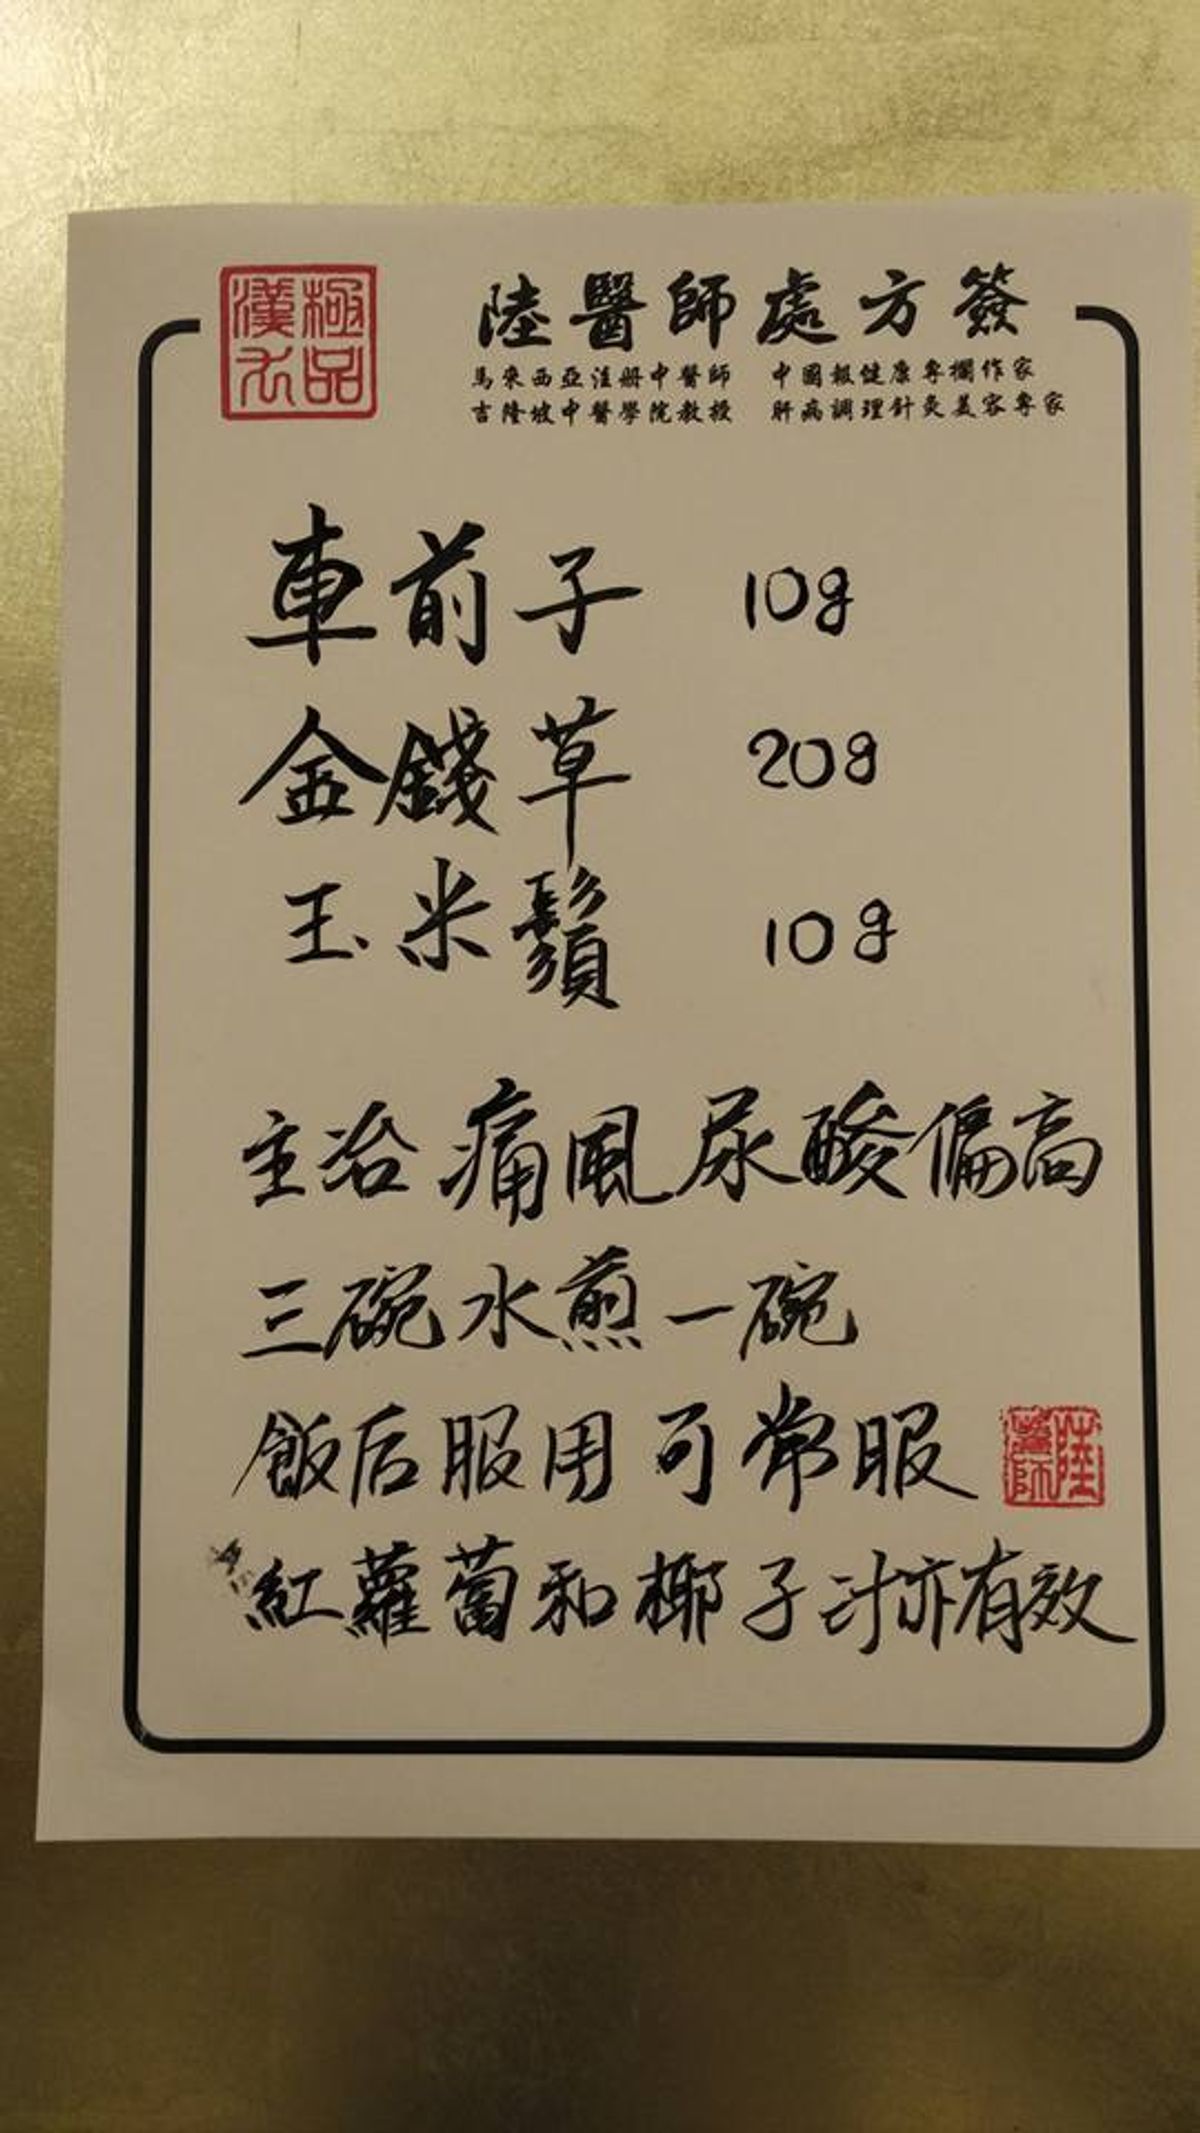 極品漢方
陸醫師處方簽
馬來西亞注册中醫師 中國報健康專欄作家
吉隆坡中醫學院教授 肝病調理針灸美容專家
車前子 10g
金錢草 20g
玉米鬚 10g
主治 痛風 尿酸偏高
三碗水煎一碗
飯后服用 可常服
陸醫師
紅蘿蔔和椰子汁亦有效